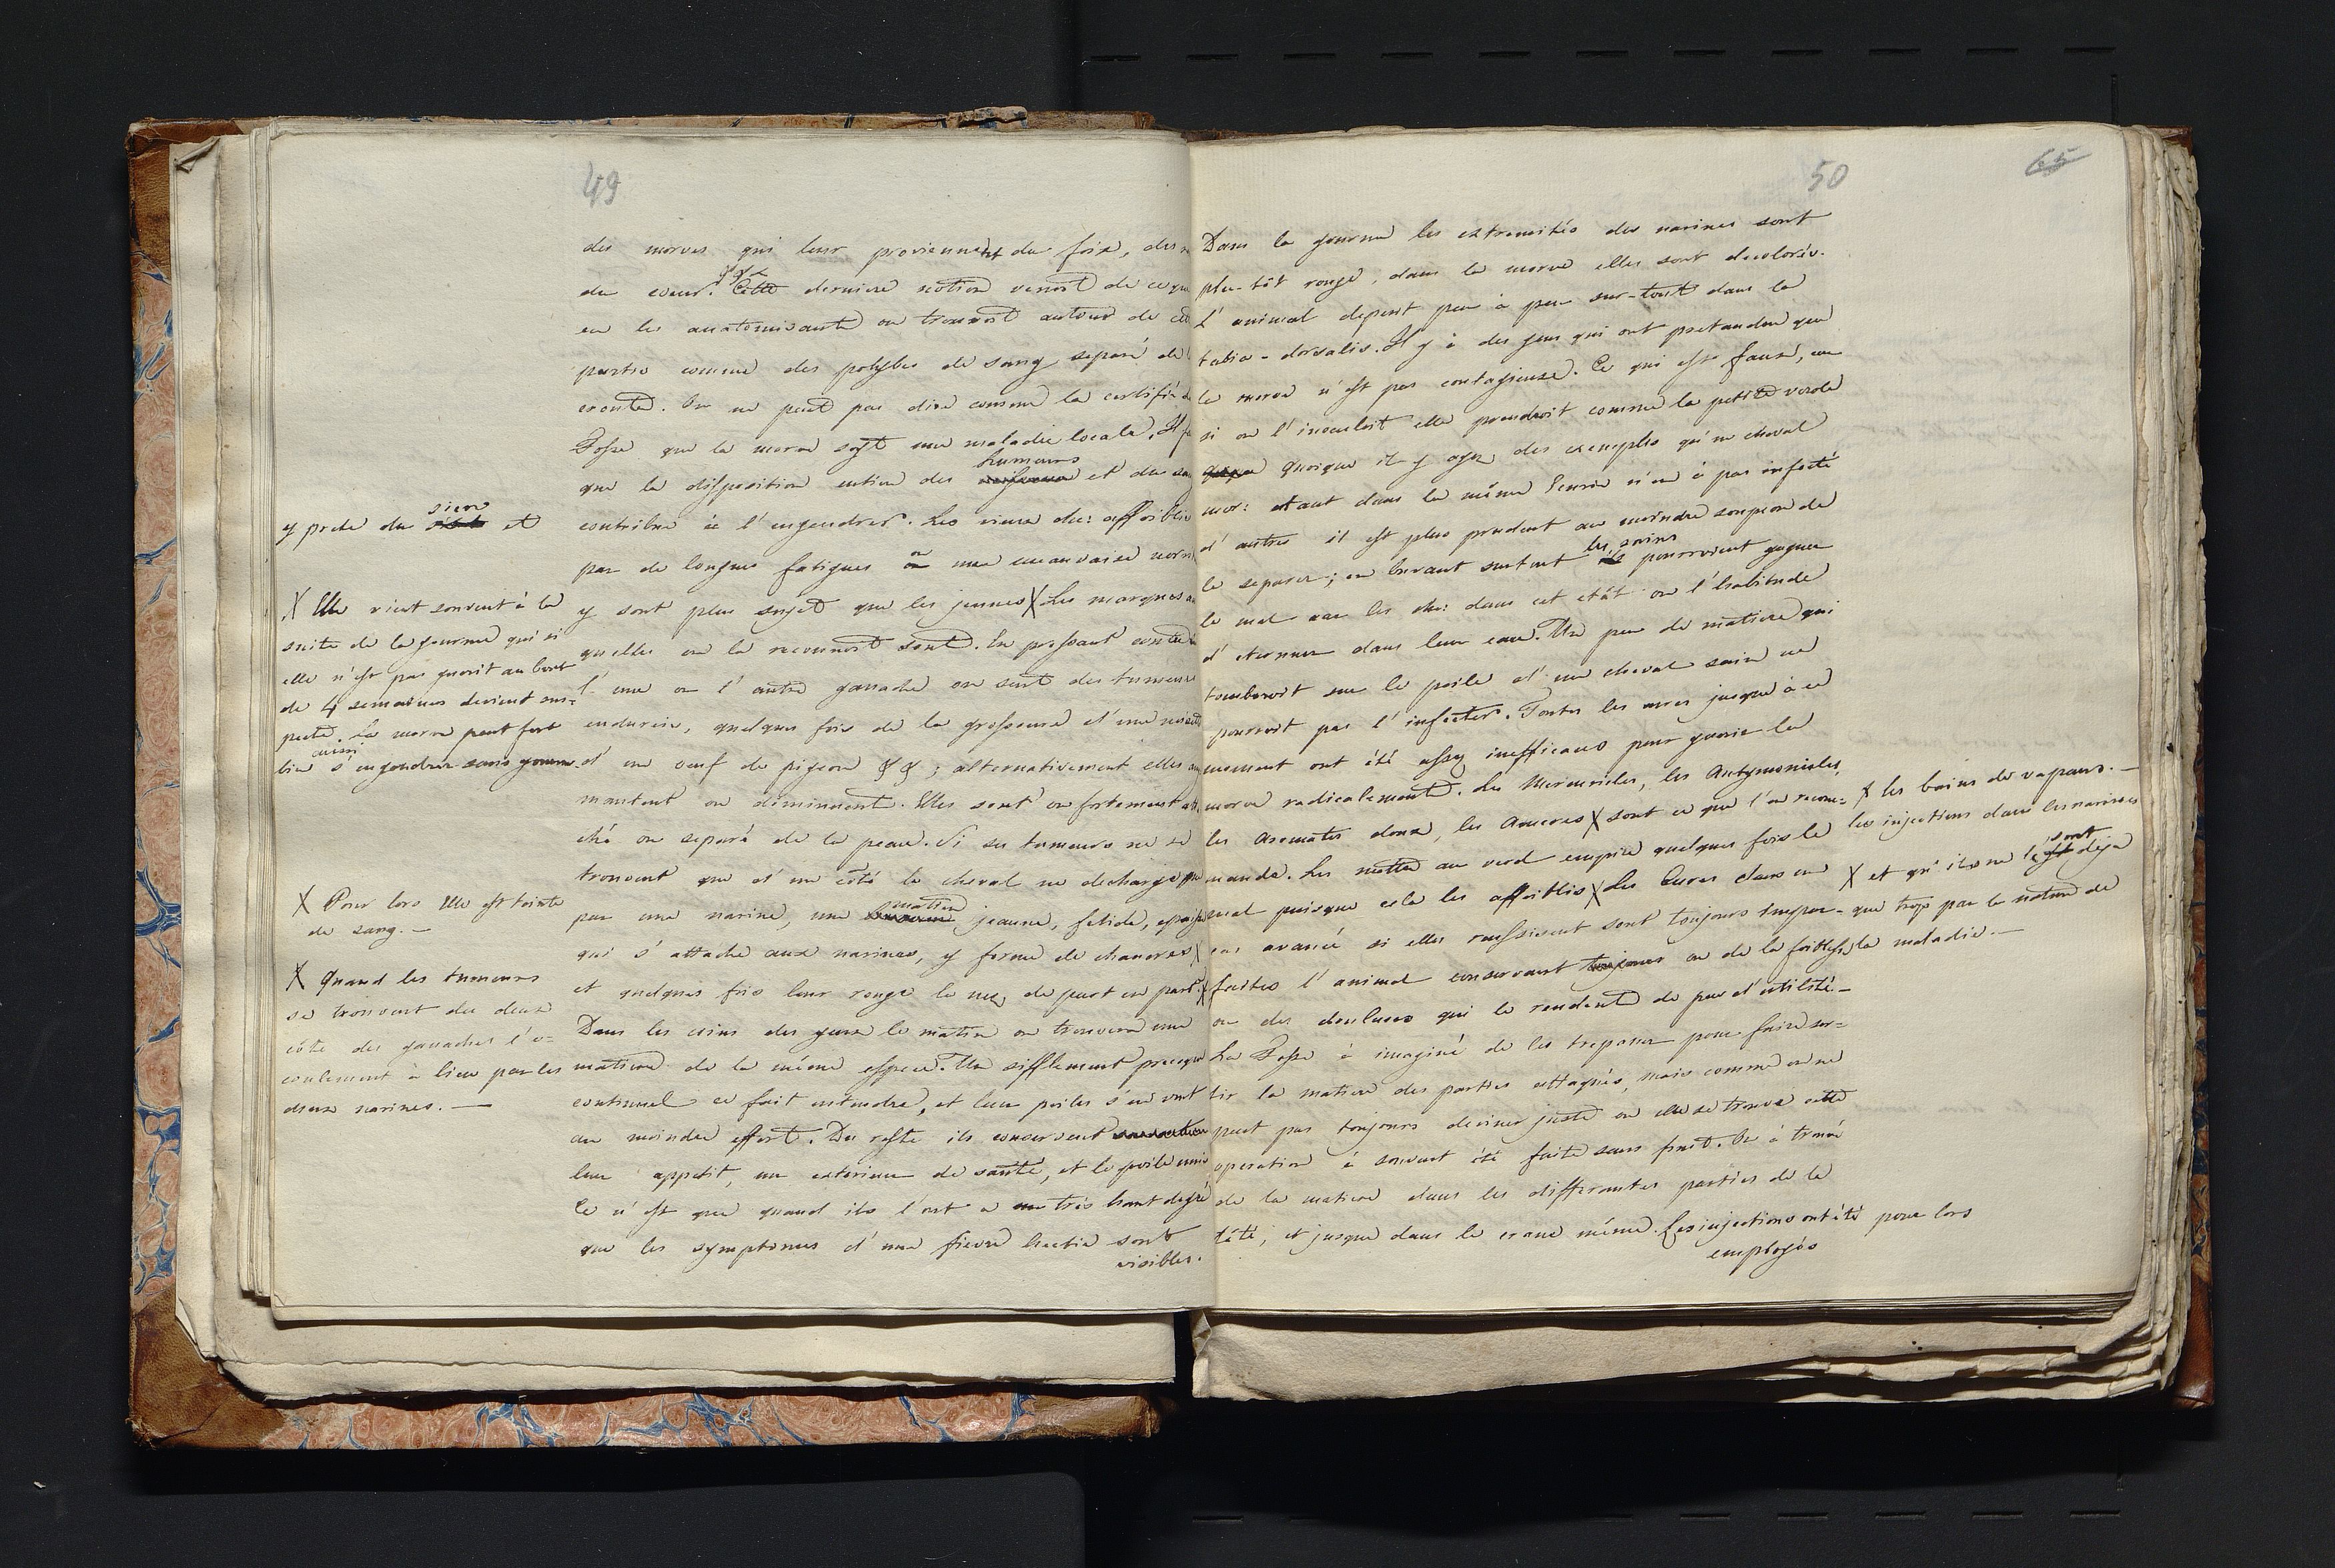 49
des morves qui leur proviennent du foie, des
du coeur. &&& Cette derniere notion venoit de ce que
en les anatomisant on trouvoit autour de
partie comme des polybes de sang separé de
crouté. On ne peut pas dire comme la certifié
Fosse que la morve soyt une maladie locale. Il
que la disposition entiere des humeurs et du
y prete du sien et
contribue à l'engendrer. Les vieux che: affoiblis
par de longues fatigues ou une mauvaise
y sont plus sujet que les jeunes X Les marques
quelles on la reconnoit sont. En pressant contre
l'une ou l'autre ganache on sent des tumeurs
endurcie, quelques fois de la grosseure d'une
d'un oeuf de pigeon && ; alternativement elles
montent ou diminuent. Elles sont ou fortement
ché ou separé de la peau. Si ses tumeurs ne se
trouvent que d'un côté le cheval ne decharge que
par une narine, une matiere jeaune, fetide,
qui s'attache aux narines, y forme de chancres X
et quelques fois leur ronge le nez de part en part. X
Dans les coins des yeux le matin on trouvera une
matiere de la même espece. Un sifflement presque
continuel ce fait entendre, et leur poiles s'en vont
au moindre effort. Du reste ils conservent
leur appetit, un exterieur de santé, et le poile
Ce n'est que quand ils l'ont a un très haut degré
que les symptomes d'une fievre hectie sont
visibles.
X Elle vient souvent à la
suite de la gourme qui si
elle n'est pas guerit au bout
de 4 semaines devient sus=
pecte. La morve peut fort
bien aussi s'engendrer sans gourme.
X Pour lors Elle est teinte
de sang. —
X Quand les tumeurs
se trouvent des deux
côté des ganaches l'e=
coulement à lieu par les
deux narines. —
50
65
Dans la gourme les extremités des narines sont
plu-tôt rouge, dans la morve elles sont decolorés.
L'animal deperit peu à peu sur-tout dans la
tabia-dorsalis. Il y à des gens qui ont pretandu que
la morve n'est pas contagieuse. Ce qui est faux, car
si on l'inoculoit elle prendroit comme la petite verole
Quoique il y aye des exemples qu'un cheval
mor: etant dans la même Ecurie n'en à pas infecté
d'autres il est plus prudent au moindre soupçon de
le separer; en buvant surtout les sains pourroient gagner
le mal car les che: dans cet etât on l'habitude
d'eternuer dans leur eau. Un peu de matiere qui
tomberoit sur le poile d'un cheval sain ne
pourroit pas l'infecter. Toutes les cures jusque à ce
moment ont été assez inefficaces pour guerir la
morve radicalement. Les Mercurieles, les Antymonieles,
les Aromates doux, les Ameres X sont ce que l'on recom=
mande. Les mettre au verd empire quelques fois le
mal puisque cela les affoiblis X Les Cures dans un
cas avancé si elles reussissent sont toujours impar-
faites l'animal conservant toujours ou de la foiblesse
ou des douleurs qui le rendent de peu d'utilité. —
La Fosse à imaginé de les trepaner pour faire sor=
tir la matiere des parties attaqués, mais comme on ne
peut pas toujours deviner juste ou elle se trouve cette
operation à souvent été faite sans fruit. On à trouvé
de la matiere dans les differantes parties de la
têtê, et jusque dans le crane même. Les injections ont été pour lors
employés
X les bains de vapeurs. —
les injections dans les narines
X et qu'ils ne le sont déjà
que trop par la nature de
la maladie. —